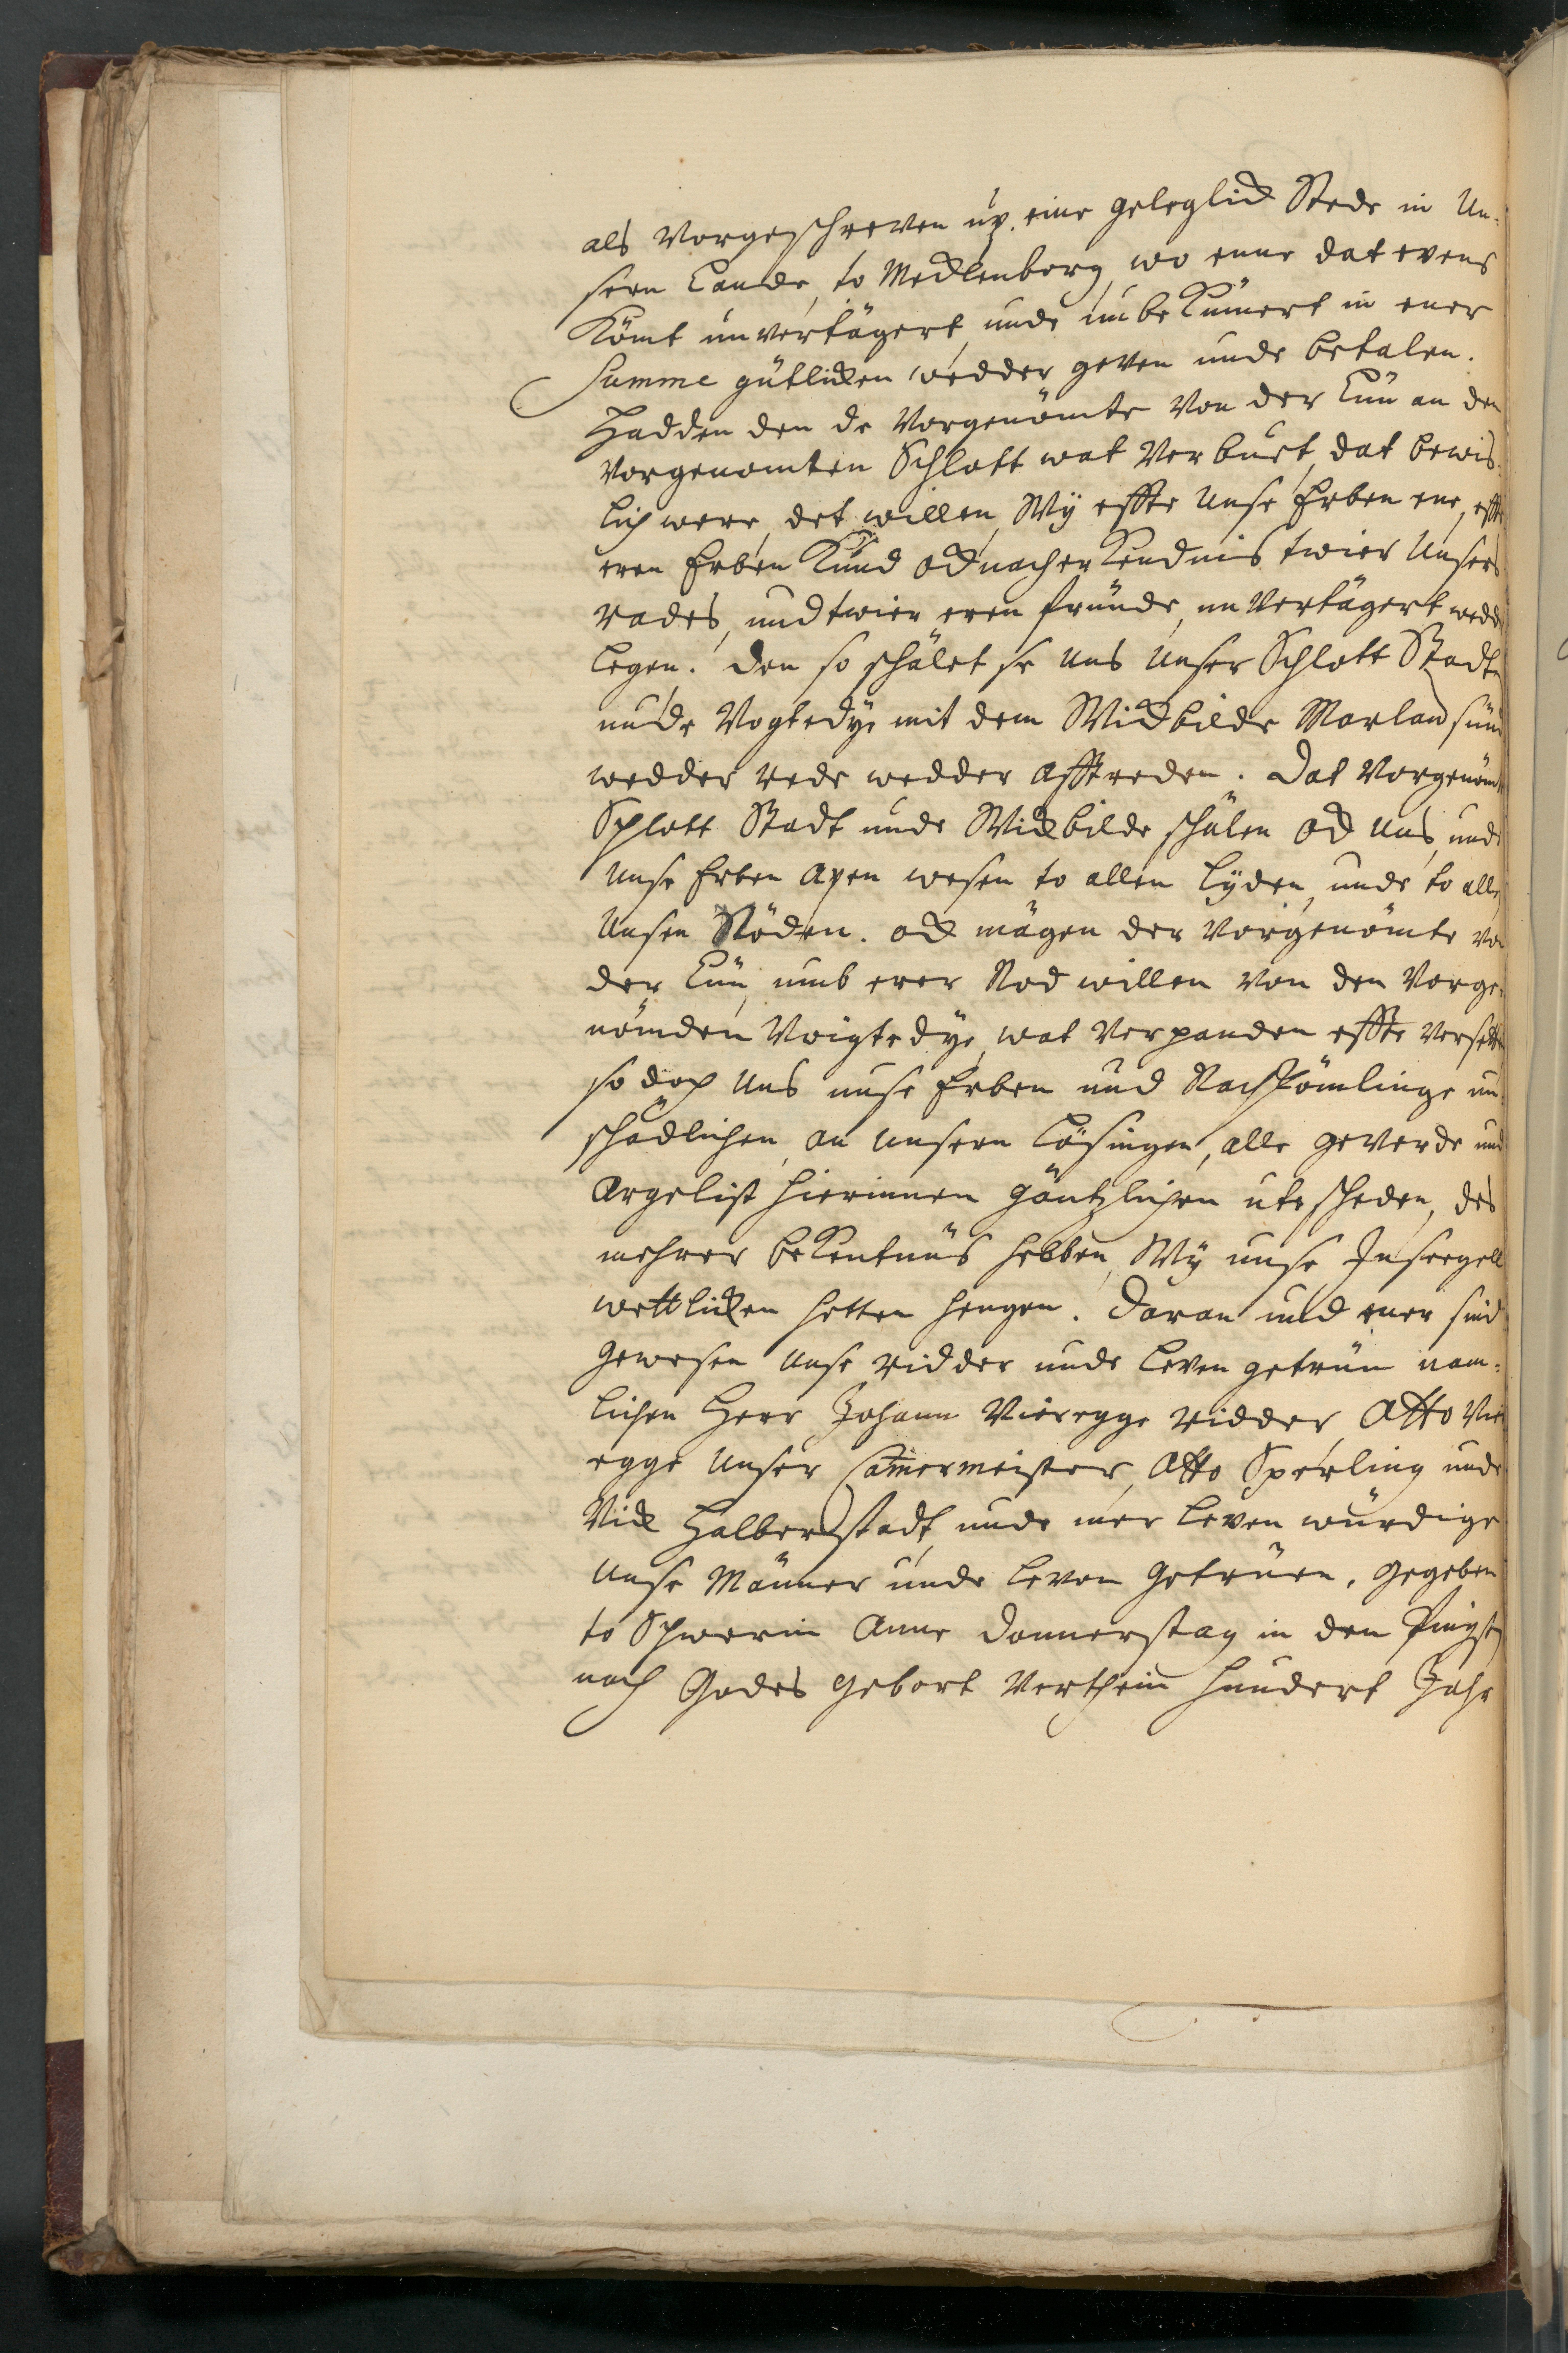 als Vorgeschreven up. eine geleglick Stede in Un-
sern Lande, to Mecklenborg, wo enne dat evens
Kömt unvertägert, unde unbekümert in ener
Summe gütlicken wedder geven unde betalen.
Hadden den de Vorgenömte Von der Lüü an den
Vorgenomten Schlott wat Verbuet, dat bewis-
lich were, det willen, Wÿ effte Unse Erben ene, effte
eren Erben Kund ock nach erkendnis twier Unsers
rades, und twier eren fründe, un Vertägert wedd
legen. Den so schölet se Uns Unser Schlott Stadt
unde Vogtedÿe mit dem Wickbilde Marlow sün
wedder rede wedder Afftreden. Dat Vorgenömt
Schlott Stadt unde Wickbilde schülen ock Uns, unde
Unse Erben Apen wesen to allen tÿden, unde to alle
Unsen Nöden. ock mägen der Vorgenömte von
der Lüü, umb erer Nod willen von den Vorge-
nömden Voigtedÿe, wat Verpanden effte Versett
so doch Uns unse Erben und Nachkömlinge un-
schädlichen, an unsern Lösingen, alle geverde und
Argelist hierinnen gäntzlichen utescheden, des
mehrer bekentnüs hebben, Wÿ unse Inseegell
wettlicken hetten hengen. Daran und ener sind
gewesen Unse ridder unde leven getrüü nam-
lichen Herr Johann Vieregge ridder, Otto Vier
egge Unser Camermeister, Otto Sperling unde
Vick Halberstadt, unde mer leven würdige
Unse Männer unde leven Getrüen, gegeben
to Schwerin Anne Donnerstag in den Pingsten
nach Godes Gebort Verthein hundert Jahr